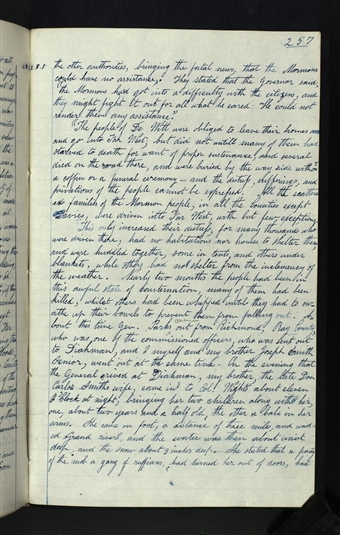 257
the other authorities, bringing the fatal news, that the Mormons
could have no assistance. They stated that the Governor said
"the Mormons had got into a difficulty with the citizens, and
they might fight it out for all what he cared. He could not
render them any assistance."
"The people of De Witt were obliged to leave their homes and
go into Far West; but did not untill many of them had
starved to death for want of proper sustenance, and several
died on the road there, and were buried by the way side without
a coffin or a funeral ceremony — and the distress, sufferings, and
privations of the people cannot be expressed. All the scatter
ed families of the Mormon people, in all the Counties except
Davies, were driven into Far West, with but few exceptions.
"This only increased their distress, for many thousands who
were driven there, had no habitations nor houses to shelter them
and were huddled together, some in tents, and others under
blankets, while others had no shelter from the inclemency of
the weather. Nearly two months the people had been in
this awful state of consternation, many of them had been
killed, whilst others had been whipped until they had to sw
athe up their bowels to prevent them from falling out. A-
bout this time Gen. Parks out from Richmond, Ray County
who was one of the commissioned officers, who was sent out
to Diahman, and I myself and my brother Joseph Smith
Senior, went out at the same time. On the evening that
the General arived at Diahman, my brother, the late Don
Carlos Smiths wife, came in to Col. Wights about eleven
o'clock at night, bringing her two children along with her,
one, about two years and a half old, the other a babe in her
arms. She came on foot, a distance of three miles, and wad-
ed Grand river, and the water was then about waist
deep, and the snow about 3 inches deep. She stated that a party
of the mob a gang of ruffians, had turned her out of doors, had